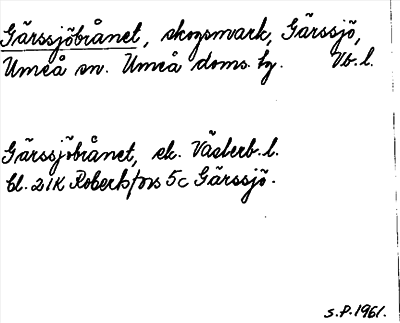 Gärssjöbrånet, skogsmark, Gärssjö,
Umeå sn. Umeå doms. hg. Vb. l.
Gärssjöbrånet, ek. Västerb. l.
bl. 21K Robertsfors 5c Gärssjö.
S.P. 1961.